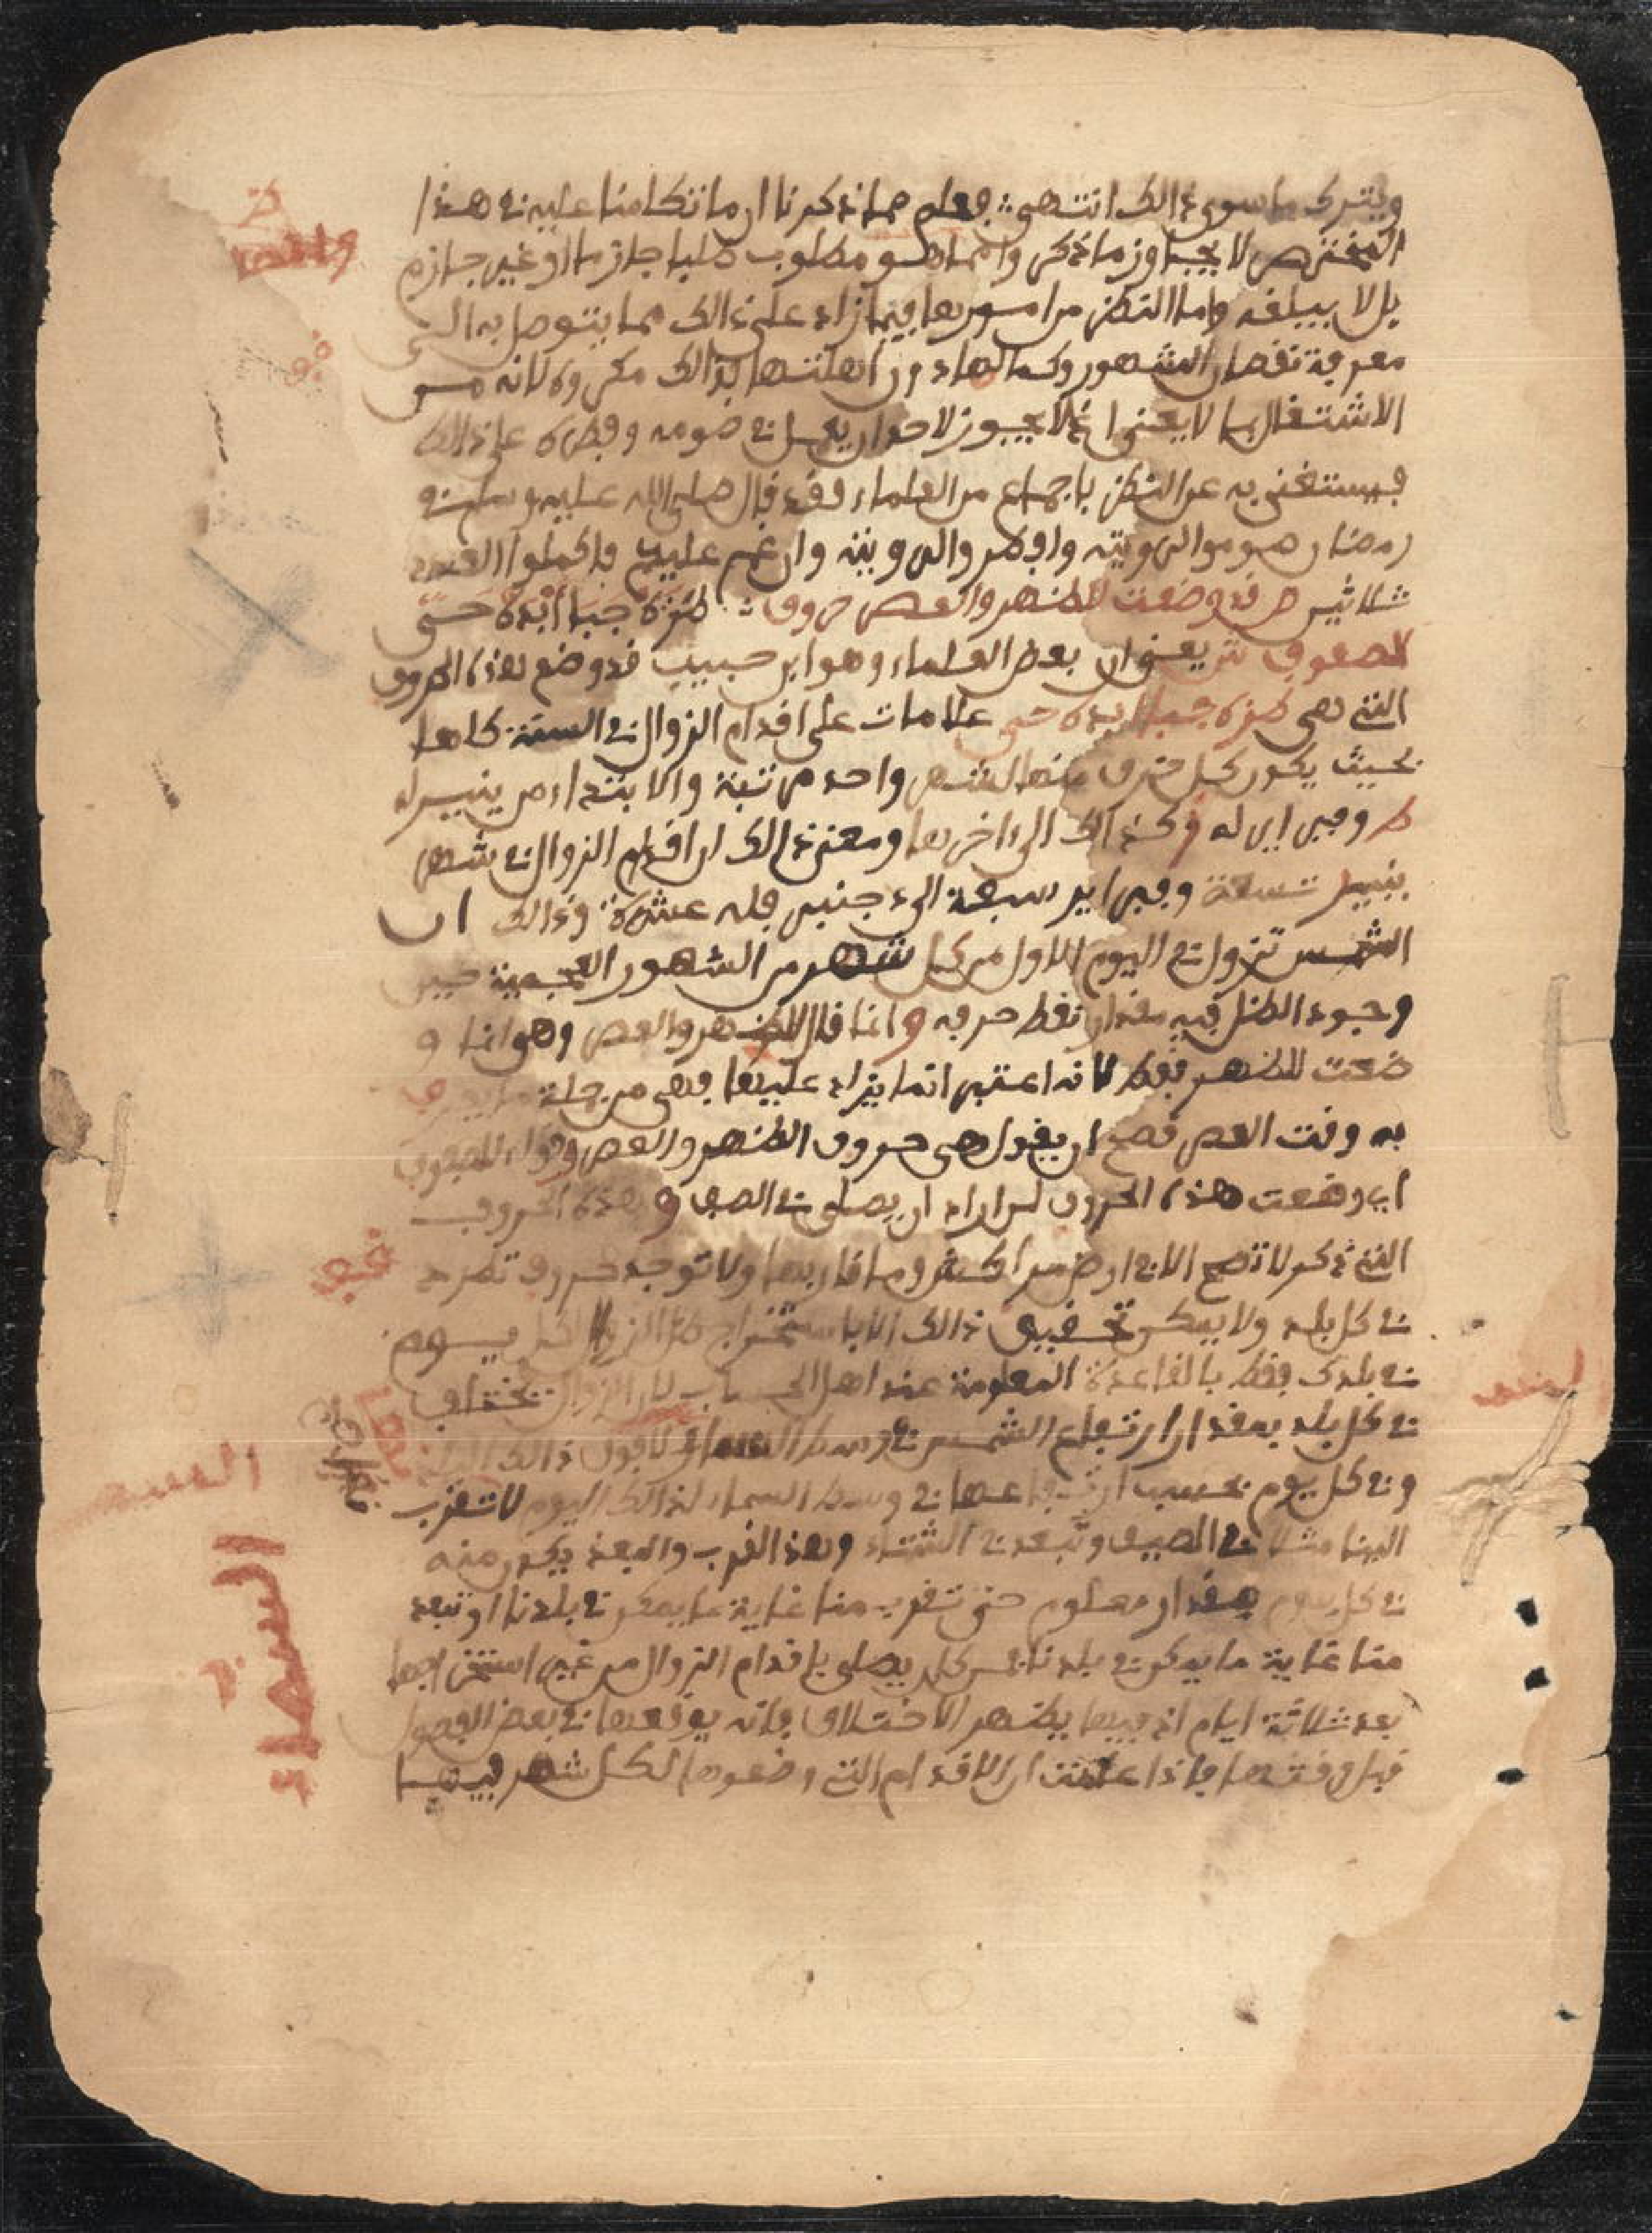 ويترك ما سوى ذالك انتهى فعلم مما ذكرنا ان ما تكلمنا عليه في هذا
المختصر لا يجاوز ما ذكر وانما هو مطلوب طلبا جازما او غير جازم
بل لا يبلغه واما النظر من امورها فيما زاد على ذالك مما يتوصل به الى
معرفة نقصان الشهور وكمالها دون اهلتها بذالك مكروه لانه من
الاشتغال بما لا يعني اذ لا يجوز لاحد ان يعمل في صومه وفطره على ذالك
فيستغنى به عن النظر باجماع من العلماء فقد قال صلى الله عليه وسلم في
رمضان صوموا لرويته وافطروا لرويته وان غم عليكم فاكملوا العدة
ثلاثين ص قد وضعت للظهر والعصر حروف طزه جبا ابده حسي
للصفوف ش يعني ان بعض العلماء وهو ابن حبيب قد وضع هذه الحروف
التي هي طزه جبا ابده حسي علامات على اقدام الزوال في السنة كلها
بحيث يكون كل حرف منها لشهر واحد مرتبة والابتداء من ينير له
ط وفبراير له ز وكذالك الى ءاخرها ومعنى ذالك ان اقدام الزوال في شهر
ينير تسعة وفبراير سبعة الى دجنبر فله عشرة وذالك ان
الشمس تزول في اليوم الاول من كل شهر من الشهور العجمية حين
وجود الظل فيه مقدار نقط حرفه وانما قال للظهر والعصر وهو انما و
ضعت للظهر فقط لانه اعتبر انما يزاد عليها فهي من جملة ما يعرف
به وقت العصر فصح ان يقول هي حروف الظهر والعصر وقوله للصفوف
اي وضعت هذه الحروف لمن اراد ان يصلي في الصف وهذه الحروف
التي ذكر لا تصح الا في ارض مراكش وما قاربها ولا توجد حروف تطرد
في كل بلد ولا يمكن تحقيق ذالك الا باستخراج ظل الزوال لكل يوم
في بلدك فقط بالقاعدة المعلومة عند اهل الحساب لان الزوال تختلف
في كل بلد بمقدار ارتفاع الشمس في وسط السماء لافق ذالك البلد
وفي كل يوم بحسب ارتفاعها في وسط السماء لذالك اليوم لانها تقرب
الينا مثلا في الصيف وتبعد في الشتاء وهذا القرب والبعد يكون منه
في كل يوم مقدار معلوم حتى تقرب منا غاية ما يمكن في بلدنا او تبعد
منا غاية ما يمكن في بلدنا فمن كان يصلي باقدام الزوال من غير استخراجها
بعد ثلاثة ايام اذ فيها يظهر الاختلاف فانه يوقعها في بعض الفصول
قبل وقتها فاذا علمت ان الاقدام التي وضعوها لكل شهر فيها
السماء